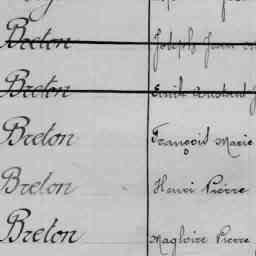 Breton Joseph Jean
Breton Emile
Breton François Marie
Breton Henri Pierre
Breton Magloire Pierre